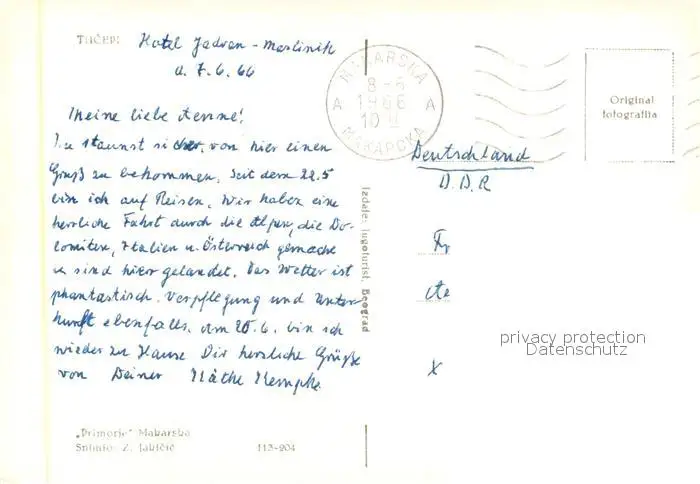 TUČEPI Hotel Jadran - Maslinik
d. 7.6.66
Meine liebe Aenne!
Du staunst sicher, von hier einen
Gruß zu bekommen. Seit dem 22.5
bin ich auf Reisen. Wir haben eine
herrliche Fahrt durch die Alpen, die Do-
lomiten, Italien u. Österreich gemacht
u. sind hier gelandet. Das Wetter ist
phantastisch. Verpflegung und Unter-
kunft ebenfalls. Am 20.6. bin ich
wieder zu Hause Dir herzliche Grüße
von Deiner Käthe Kempke
„Primorje" Makarska
Snimio: Z. Jakičić 113-204
Izdaje: Jugoturist, Beograd
MAKARSKA
8-6
1966
10
A A
МАКАРСКА
Original
fotografija
Deutschland
D.D.R
Fr
X
privacy protection
Datenschutz